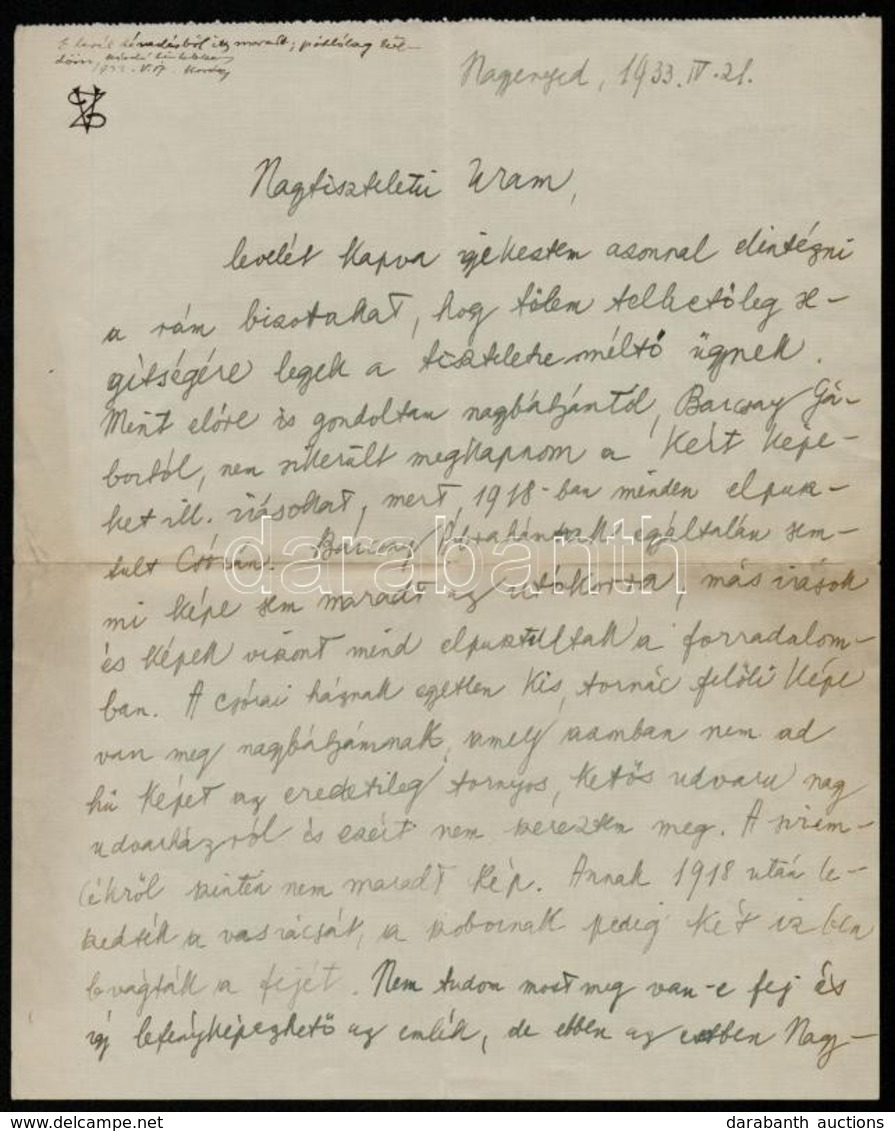 E levél
Nagyenyed, 1933. IV. 21.
Nagytiszteletü Uram,
levelét kapva igyekeztem azonnal elintézni
a rám bizottakat, hogy tőlem telhetőleg se-
gitségére legyek a tiszteletre méltó ügynek.
Mint előre is gondoltam nagybátyámtól, Barcsay Gá-
bortól, nem sikerült megkapnom a kért képe-
ket ill. irásokat, mert 1918-ban minden elpusz-
tult Csórán. Barcsay Ábrahámnak egyáltalán sem-
mi képe sem maradt az utókorra, más irások
és képek viszont mind elpusztultak a forradalom-
ban. A csórai háznak egyetlen kis, tornác felöli képe
van meg nagybátyámnak, amely azomban nem ad
hű képet az eredetileg tornyos, kettős udvaru nagy
udvarházról és ezért nem szereztem meg. A sirem-
lékről szintén nem maradt kép. Annak 1918 után le-
szedték a vasrácsát, a szobornak pedig két izben
levágták a fejét. Nem tudom most meg van-e fej és
igy lefényképezhető az emlék, de ebben az esetben Nagy-
darabanth
www.darabanth.com
darabanth auctions